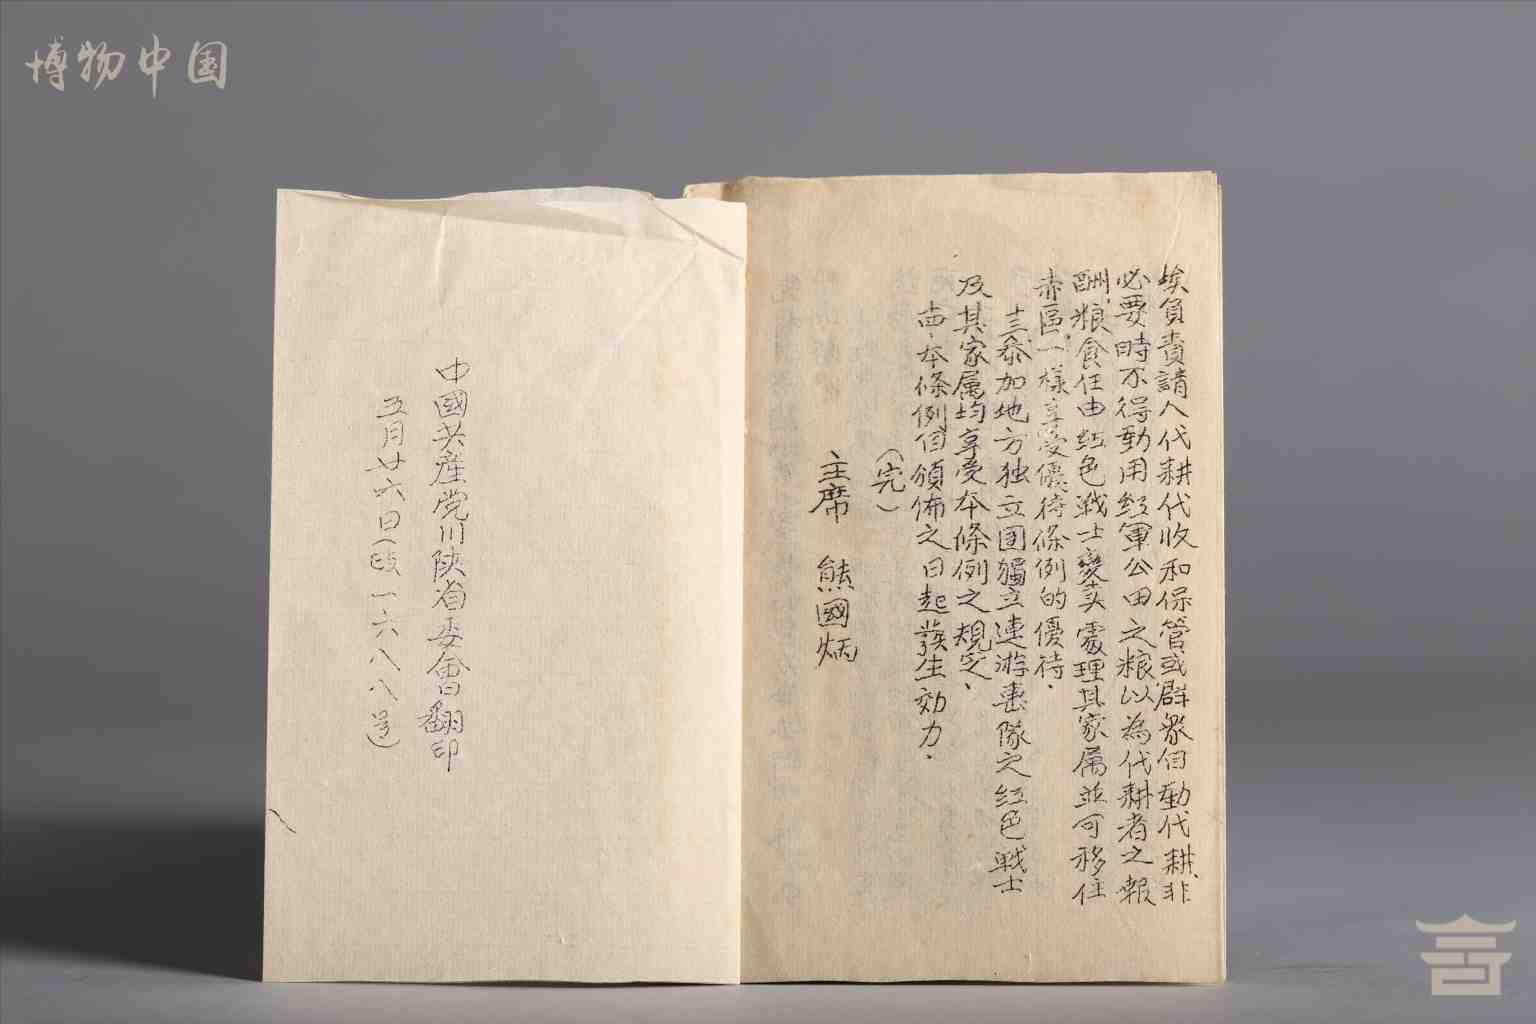 博物中国
埃負責請人代耕代收和保管或群眾自動代耕、非
必要時不得動用紅軍公田之粮以為代耕者之報
酬、粮食任由紅色戦士變卖處理其家属並可移住
赤區一樣享受優待條例的優待.
十三、叅加地方独立团獨立連游击隊之紅色戦士
及其家属均享受本條例之規定、
本條例自頒佈之日起發生効力.
(完)
主席 熊國炳
中國共產党川陕省委會翻印
五月廿六日(改一六八八 )